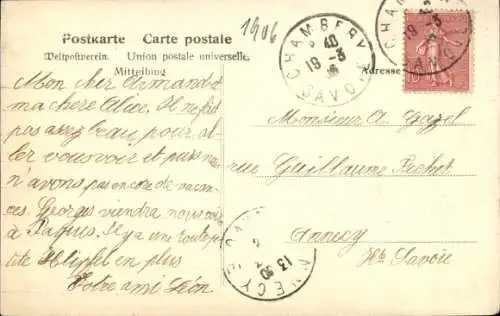 1906
Postkarte Carte postale
Weltpostverein. Union postale universelle.
Mitteilung
Adresse
CHAMBERY
SAVOIE
Mon cher Armand et
ma chère Alice. Il ne fait
pas assez beau pour al
ler vous voir et puis nous
n'avons pas encore de vacan
ces. Georges viendra nous voir
à Pâques. Il y a une toute pe
tite Hipfel en plus
Votre ami Léon
Monsieur A. Gazel
rue Guillaume Fichet
Annecy
Hte Savoie
ANNECY